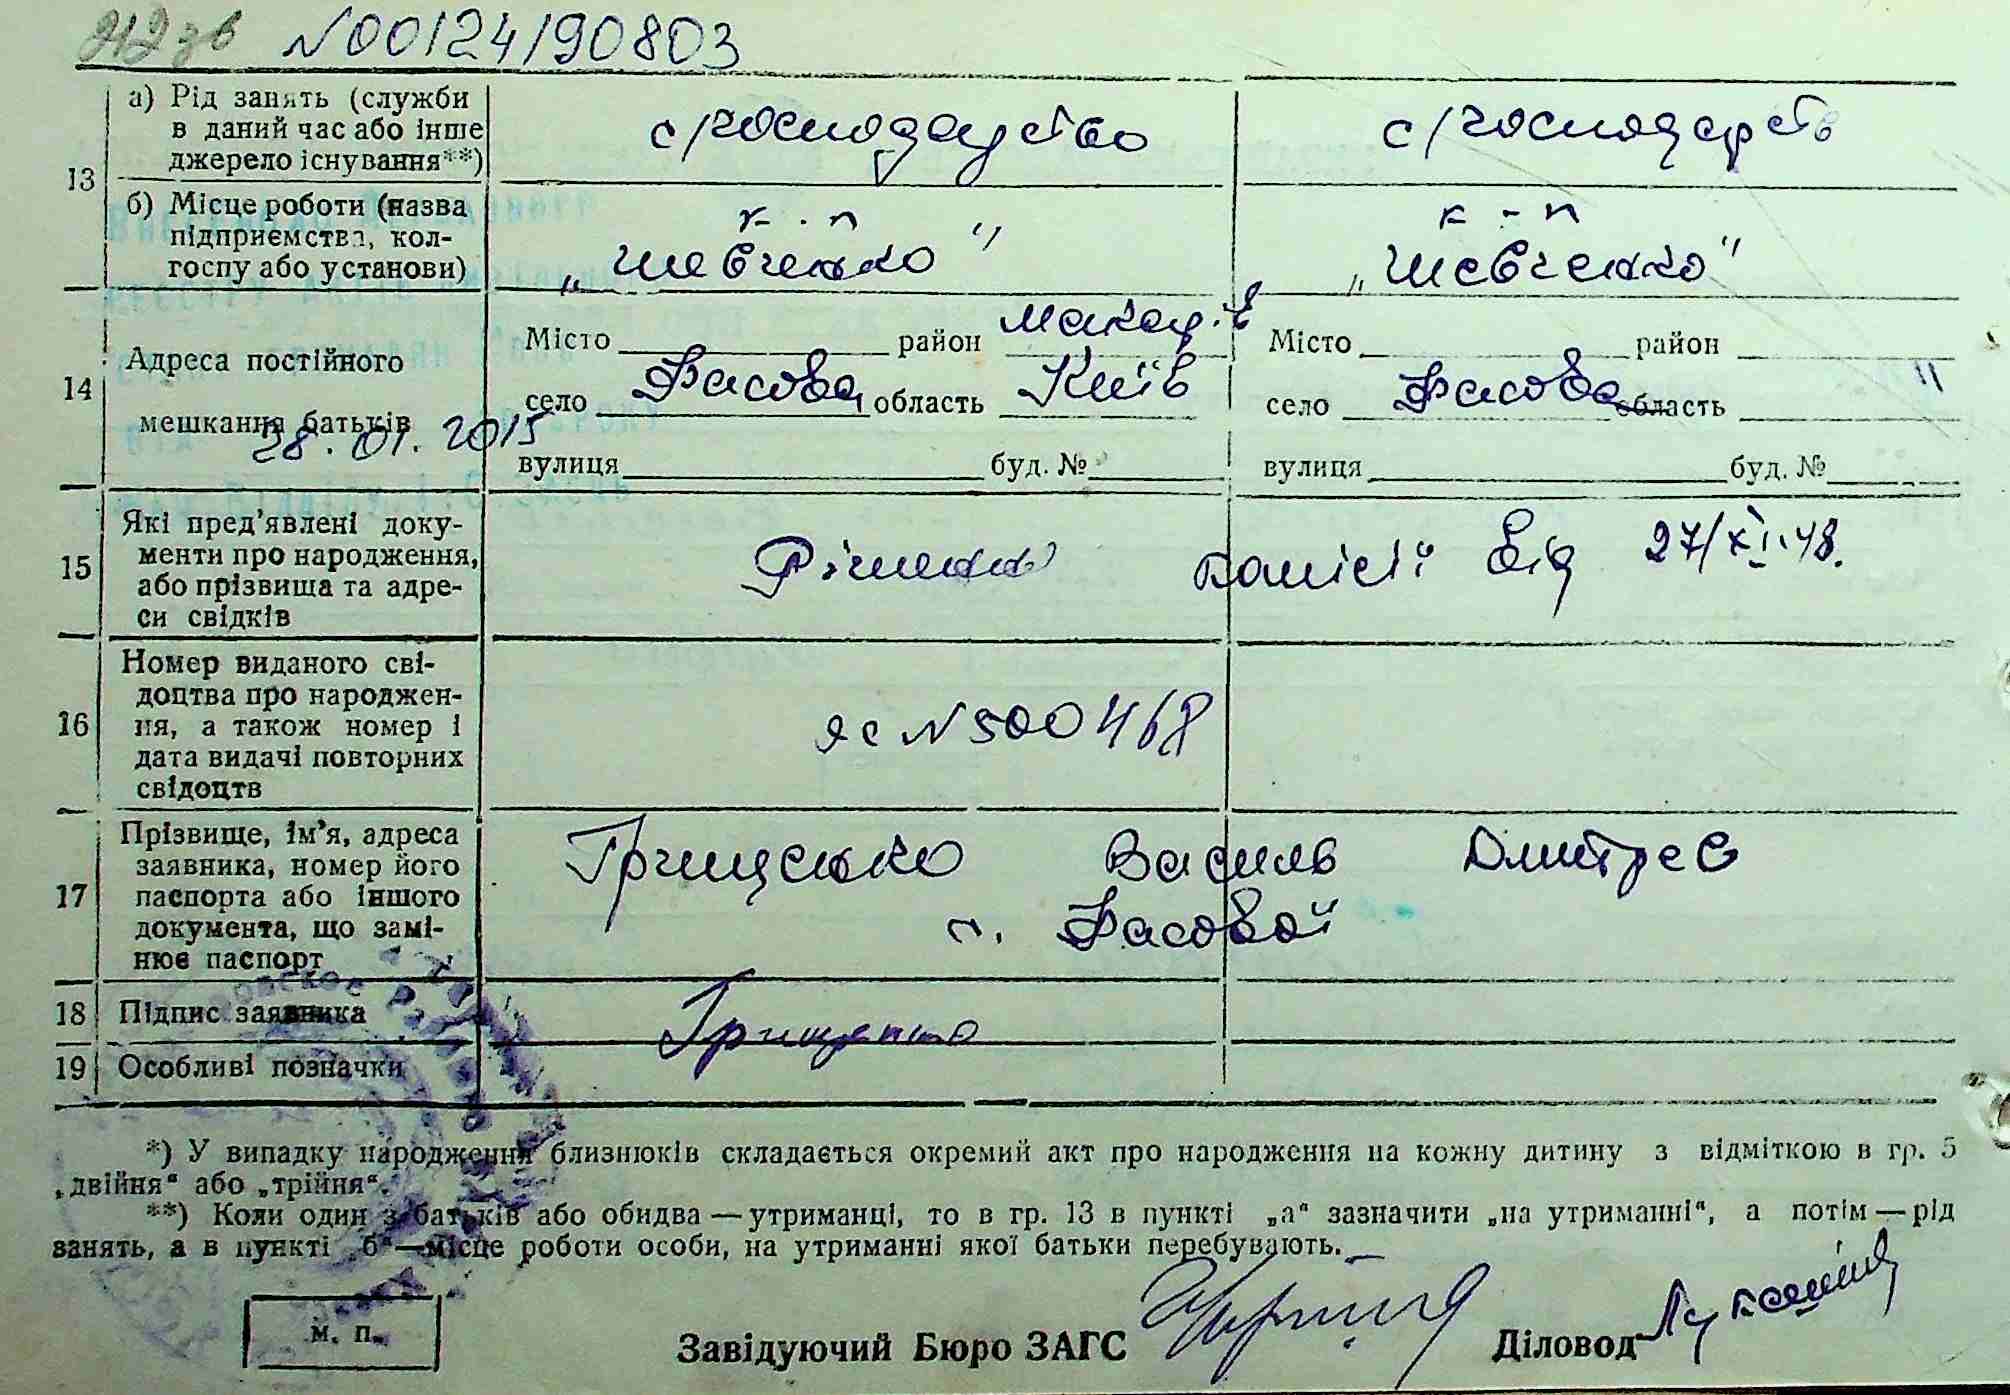 212 зв N00124190803
13 а) Рід занять (служби в даний час або інше джерело існування**) с/господарство с/господарств
б) Місце роботи (назва підприємства, колгоспу або установи) к-п „Шевченко" к-п „Шевченко"
14 Адреса постійного мешкання батьків
Місто район Макар.в Місто район
село Фасова область Київ село Фасова область "
28.01.2015
вулиця буд. № вулиця буд. №
15 Які пред'явлені документи про народження, або прізвища та адреси свідків Рішення Комісії від 27/XI.48.
16 Номер виданого свідоцтва про народження, а також номер і дата видачі повторних свідоцтв яс N500468
17 Прізвище, ім'я, адреса заявника, номер його паспорта або іншого документа, що замінює паспорт Грищенко Василь Дмитрев
с. Фасовой
18 Підпис заявника Грищенко
19 Особливі позначки
*) У випадку народження близнюків складається окремий акт про народження на кожну дитину з відміткою в гр. 5
„двійня" або „трійня".
**) Коли один з батьків або обидва — утриманці, то в гр. 13 в пункті „а" зазначити „на утриманні", а потім — рід
занять, а в пункті „б"—місце роботи особи, на утриманні якої батьки перебувають.
м. п.
Завідуючий Бюро ЗАГС Діловод